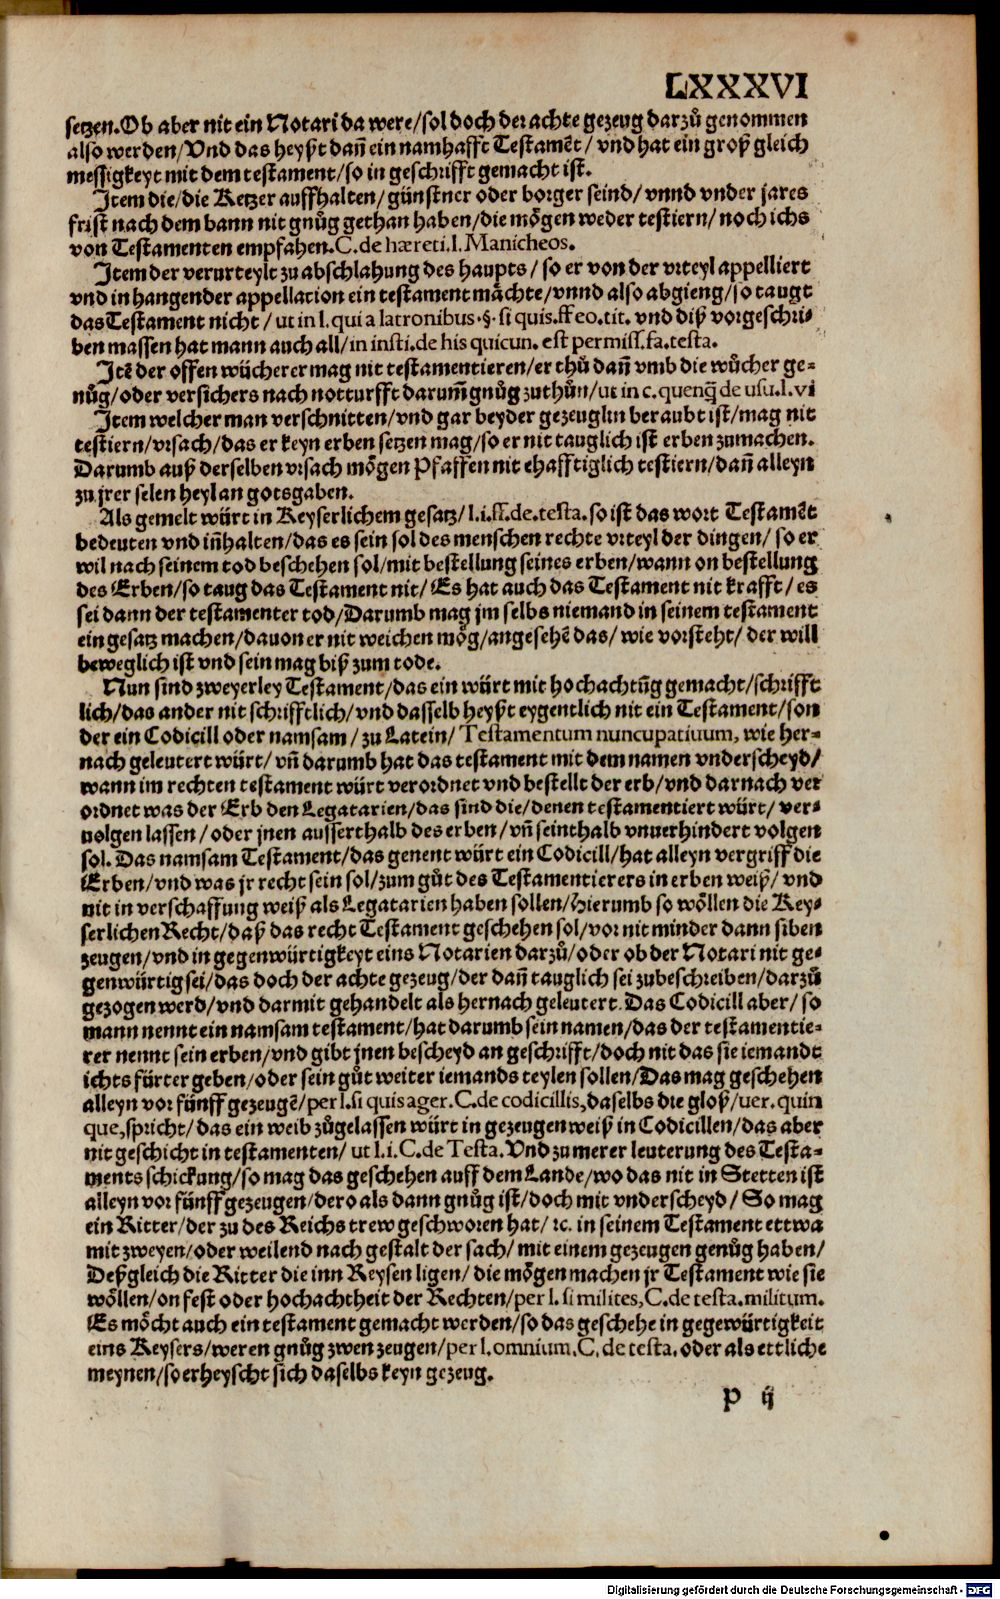 LXXXVI
setzen. Ob aber nit ein Notari da were/sol doch der achte gezeug darzů genommen
also werden/Vnd das heyßt dañ ein namhafft Testamẽt/ vnd hat ein groß gleich
messigkeyt mit dem testament/so in geschrifft gemacht ist.
Item die/die Ketzer auffhalten/ günstner oder borger seind/ vnnd vnder jares
frist nach dem bann nit gnůg gethan haben/die mögen weder testiern/ noch ichs
von Testamenten empfahen. C. de hæreti. l. Manicheos.
Item der verurteylt zu abschlahung des haupts/ so er von der vrteyl appelliert
vnd in hangender appellation ein testament mächte/vnnd also abgieng/so taugt
das Testament nicht/ ut in l. qui a latronibus.§. si quis.ff eo. tit. vnd diß vorgeschri-
ben massen hat mann auch all/in insti. de his quicun. est permiss. fa. testa.
Itẽ der offen wücherer mag nit testamentieren/er thů dañ vmb die wůcher ge-
nůg/oder versichers nach notturfft darum̃ gnůg zuthůn/ut in c. quenq̃ de usu. l. vi
Item welcher man verschnitten/vnd gar beyder gezeuglin beraubt ist/mag nit
testiern/vrsach/das er keyn erben setzen mag/so er nit tauglich ist erben zumachen.
Darumb auß derselben vrsach mögen Pfaffen nit ehafftiglich testiern/dañ alleyn
zu jrer selen heyl an gotsgaben.
Als gemelt würt in Keyserlichem gesatz/ l. i. ff. de. testa. so ist das wort Testamẽt
bedeuten vnd iñhalten/das es sein sol des menschen rechte vrteyl der dingen/ so er
wil nach seinem tod beschehen sol/mit bestellung seines erben/wann on bestellung
des Erben/so taug das Testament nit/ Es hat auch das Testament nit krafft/ es
sei dann der testamenter tod/Darumb mag jm selbs niemand in seinem testament
ein gesatz machen/dauon er nit weichen mög/angesehẽ das/ wie vorsteht/ der will
beweglich ist vnd sein mag biß zum tode.
Nun sind zweyerley Testament/das ein würt mit hochachtũg gemacht/schrifft
lich/das ander nit schrifftlich/vnd dasselb heyßt eygentlich nit ein Testament/son
der ein Codicill oder namsam/ zu Latein/ Testamentum nuncupatiuum, wie her-
nach geleutert würt/ vñ darumb hat das testament mit dem namen vnderscheyd/
wann im rechten testament würt verordnet vnd bestellt der erb/vnd darnach ver
ordnet was der Erb den Legatarien/das sind die/denen testamentiert würt/ ver-
uolgen lassen/oder jnen ausserthalb des erben/vñ seinthalb vnuerhindert volgen
sol. Das namsam Testament/das genent würt ein Codicill/hat alleyn vergriff die
Erben/vnd was jr recht sein sol/zum gůt des Testamentierers in erben weiß/ vnd
nit in verschaffung weiß als Legatarien haben sollen/Hierumb so wöllen die Key-
serlichen Recht/daß das recht Testament geschehen sol/vor nit minder dann siben
zeugen/vnd in gegenwürtigkeyt eins Notarien darzů/oder ob der Notari nit ge-
genwürtig sei/das doch der achte gezeug/der dañ tauglich sei zubeschreiben/darzů
gezogen werd/vnd darmit gehandelt als hernach geleutert. Das Codicill aber/ so
mann nennt ein namsam testament/hat darumb sein namen/das der testamentie-
rer nennt sein erben/vnd gibt jnen bescheyd an geschrifft/doch nit das sie iemandt
ichts fürter geben/oder sein gůt weiter iemands teylen sollen/Das mag geschehen
alleyn vor fünff gezeugẽ/per l. si quis ager. C. de codicillis, daselbs die gloß/uer. quin
que, spricht/das ein weib zůgelassen würt in gezeugen weiß in Codicillen/das aber
nit geschicht in testamenten/ ut l. i. C. de Testa. Vnd zu merer leuterung des Testa-
ments schickung/so mag das geschehen auff dem Lande/wo das nit in Stetten ist
alleyn vor fünff gezeugen/dero als dann gnůg ist/doch mit vnderscheyd/ So mag
ein Ritter/der zu des Reichs trew geschworen hat/ ꝛc. in seinem Testament ettwa
mit zweyen/oder weilend nach gestalt der sach/ mit einem gezeugen genůg haben/
Deßgleich die Ritter die inn Reysen ligen/ die mögen machen jr Testament wie sie
wöllen/on fest oder hochachtheit der Rechten/per l. si milites, C. de testa. militum.
Es möcht auch ein testament gemacht werden/so das geschehe in gegewürtigkeit
eins Keysers/weren gnůg zwen zeugen/per l. omnium. C. de testa. oder als ettliche
meynen/so erheyscht sich daselbs keyn gezeug.
P ij
Digitalisierung gefördert durch die Deutsche Forschungsgemeinschaft - DFG